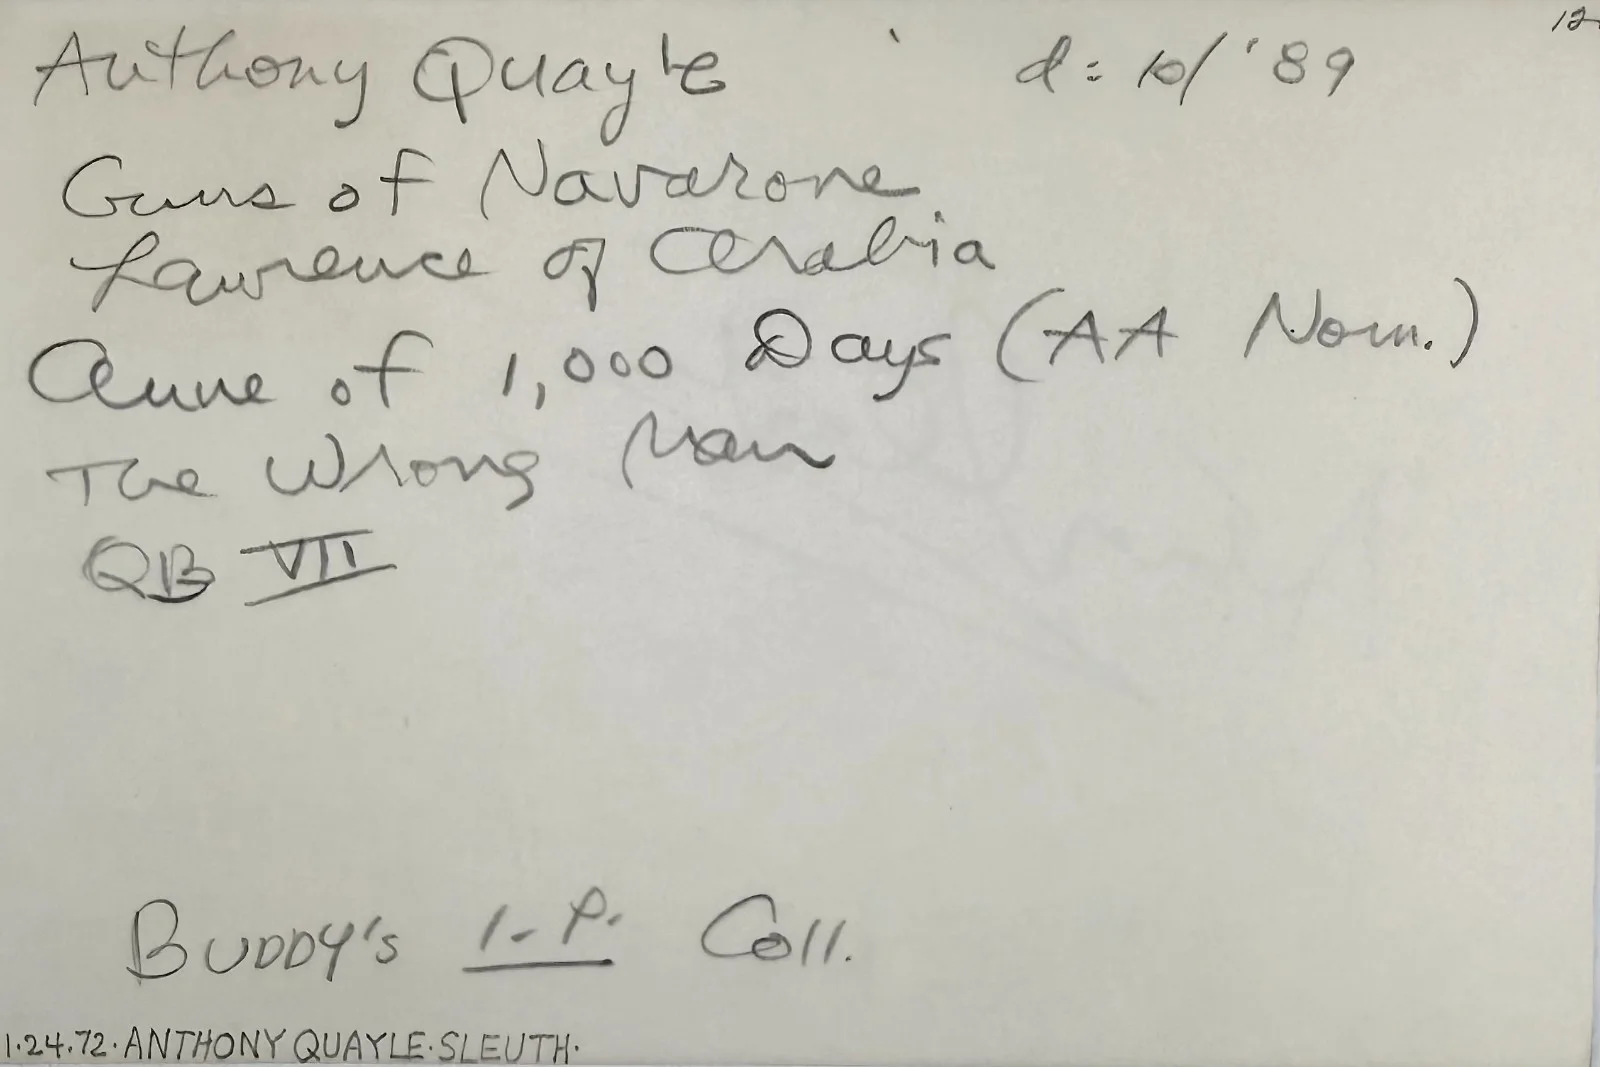 12
Anthony Quayle d: 10/'89
Guns of Navarone
Lawrence of Arabia
Anne of 1,000 Days (AA Nom.)
The Wrong Man
QB VII
BUDDY's I.P. Coll.
1.24.72. ANTHONY QUAYLE. SLEUTH.